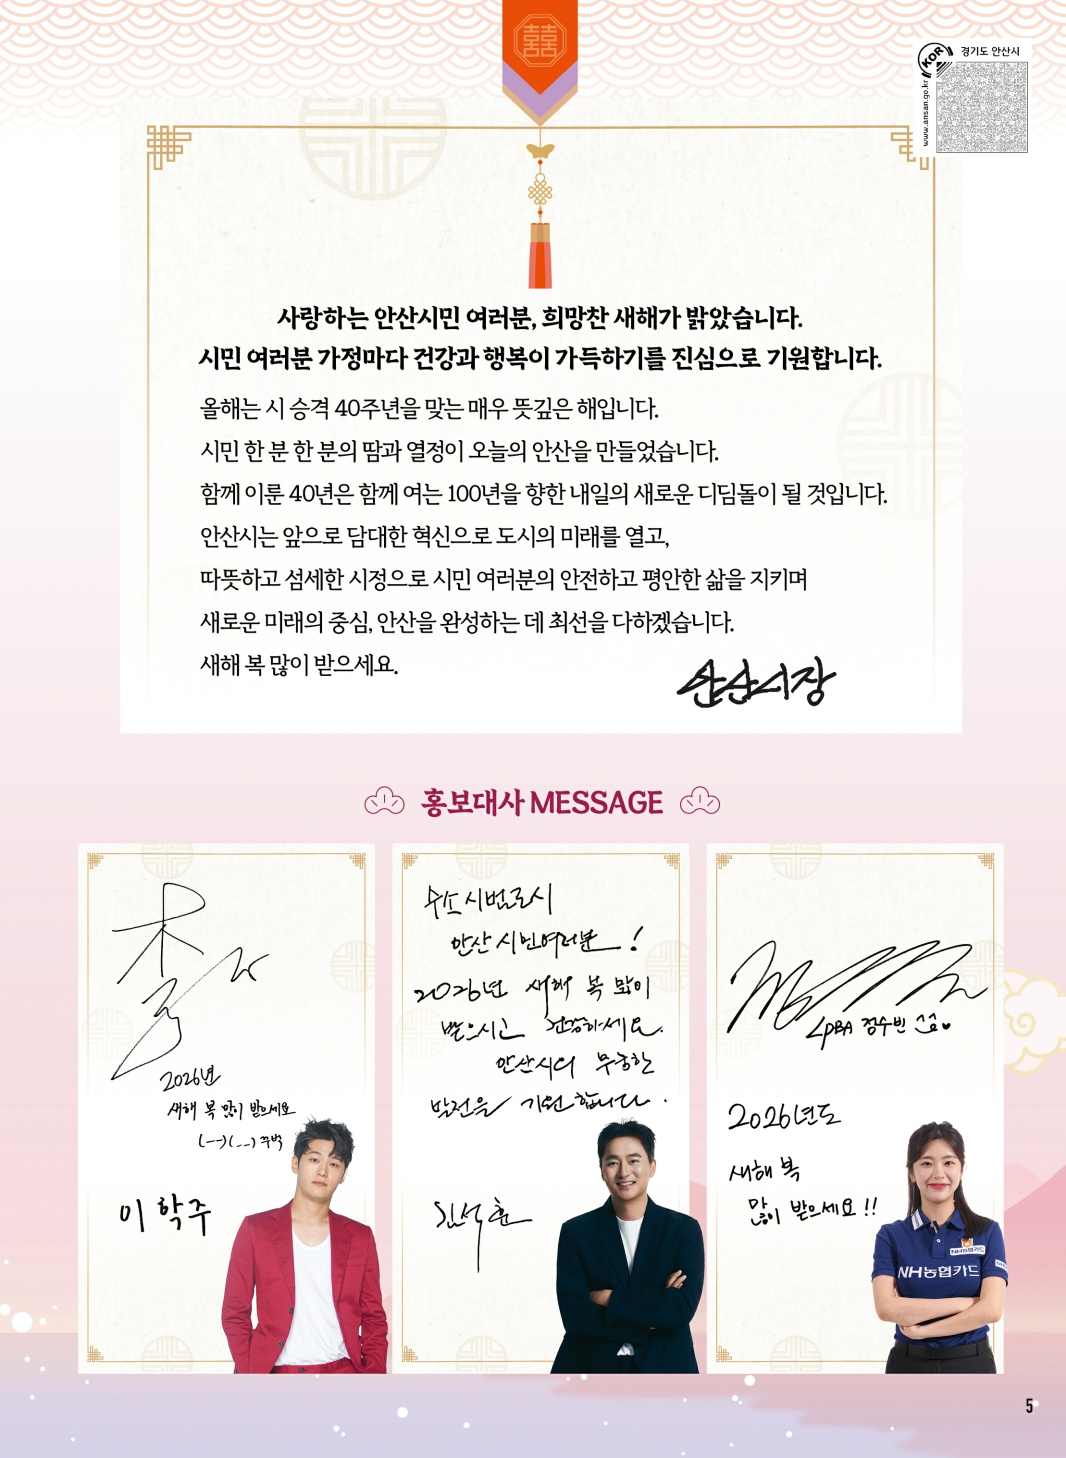 경기도 안산시
KOR
www.ansan.go.kr
사랑하는 안산시민 여러분, 희망찬 새해가 밝았습니다.
시민 여러분 가정마다 건강과 행복이 가득하기를 진심으로 기원합니다.
올해는 시 승격 40주년을 맞는 매우 뜻깊은 해입니다.
시민 한 분 한 분의 땀과 열정이 오늘의 안산을 만들었습니다.
함께 이룬 40년은 함께 여는 100년을 향한 내일의 새로운 디딤돌이 될 것입니다.
안산시는 앞으로 담대한 혁신으로 도시의 미래를 열고,
따뜻하고 섬세한 시정으로 시민 여러분의 안전하고 평안한 삶을 지키며
새로운 미래의 중심, 안산을 완성하는 데 최선을 다하겠습니다.
새해 복 많이 받으세요.
안산시장
홍보대사 MESSAGE
2026년
새해 복 많이 받으세요
(--)(__) 꾸벅
이학주
수소시범도시
안산 시민여러분!
2026년 새해 복 많이
받으시고 건강하세요.
안산시의 무궁한
발전을 기원합니다.
LPBA 정수빈 ^^♥
2026년도
새해 복
많이 받으세요!!
NH농협카드
NH농협카드
5